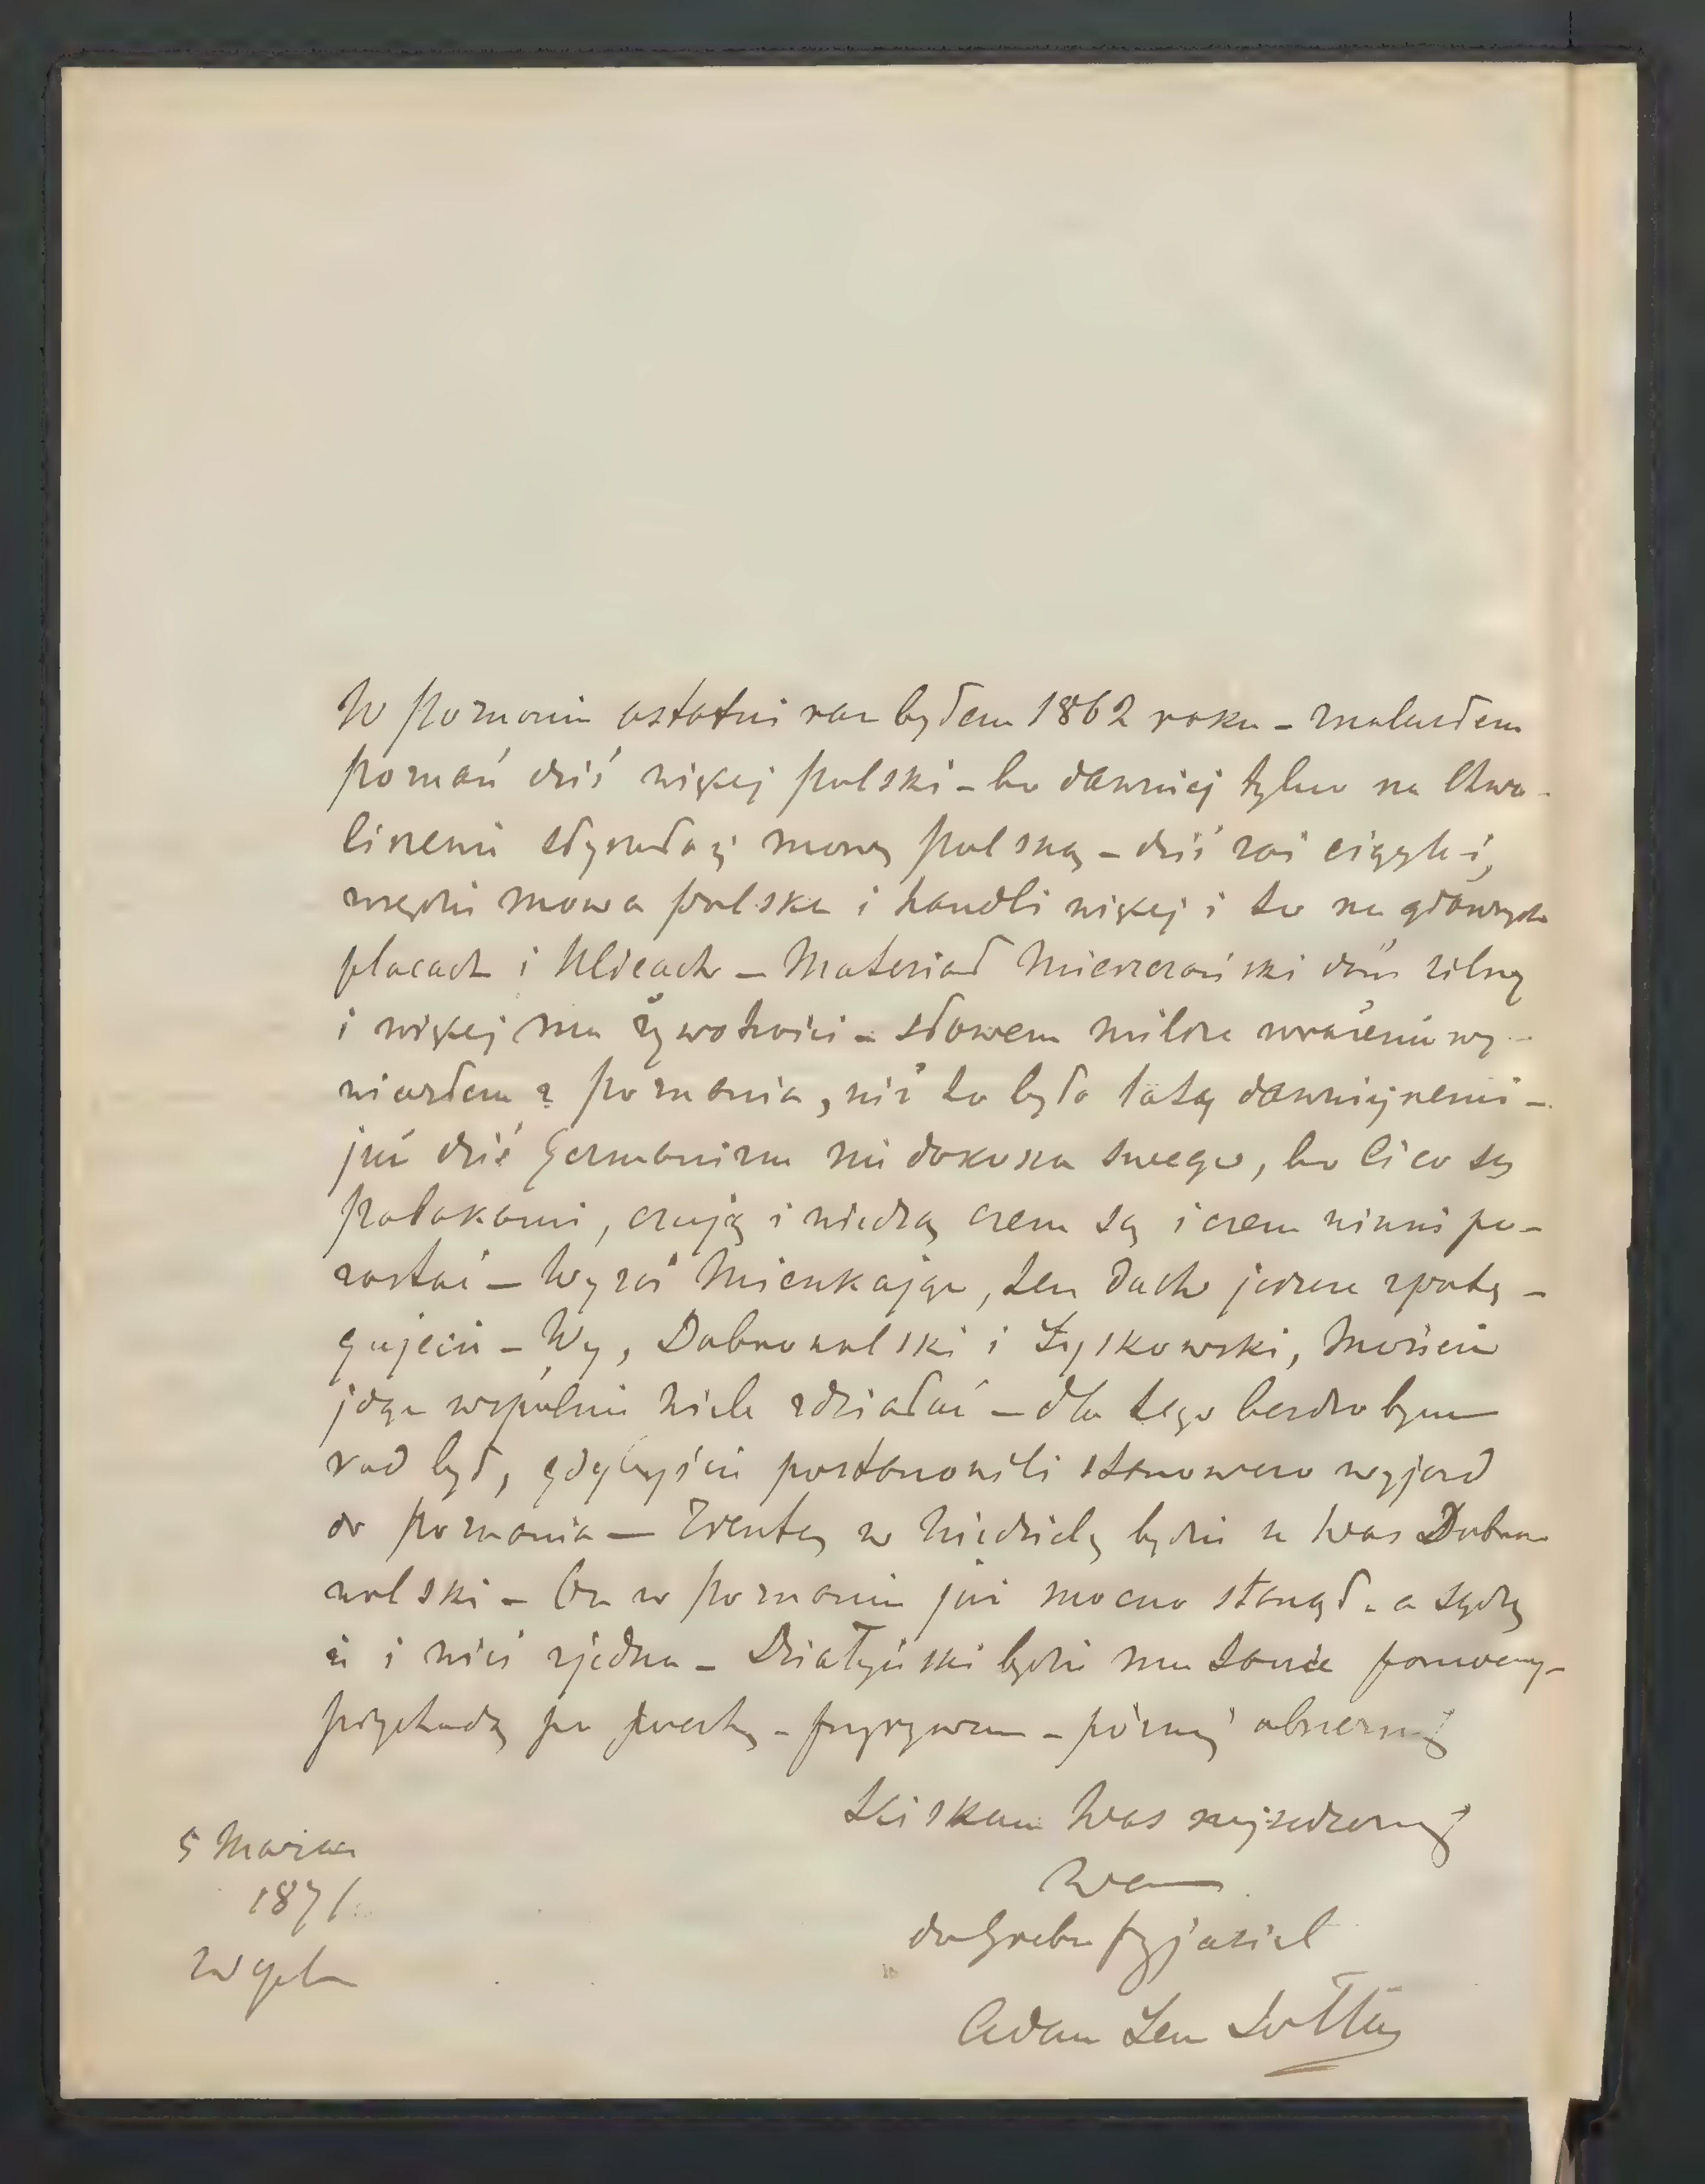 W Poznaniu ostatni raz byłem 1862 roku – znalazłem
Poznań dziś więcej polski – bo dawniej tylko na Chwa-
liszewie słyszałeś mowę polską – dziś zaś ciągle i
wszędzie mowa polska i handli więcej i to na głównych
placach i ulicach – Materiał mieszczański dziś silny
i więcej ma żywotności – słowem milsze wrażenie wy-
niosłem z Poznania, niż to było laty dawniejszemi –
już dziś Germanizm nie dokona swego, bo ci co są
Polakami, czują i wiedzą czem są i czem winni po-
zostać – Wy zaś mieszkając, ten duch jeszcze spotę-
gujecie – Wy, Dobrowolski i Łyskowski, możecie
jego wspólnie wiele zdziałać – dla tego bardzo bym
rad był, gdybyście postanowili stanowczo wyjazd
do Poznania – Zresztą w niedzielę będzie u Was Dobro
wolski – On w Poznaniu już mocno stanął – a sądzę
że i wieś zjedna – Działyński będzie mu pomocny –
przychodzą po pocztę – przerywam – później obszerniej
Ściskam Was najserdeczniej
Wasz
do grobu przyjaciel
Adam Lew Sołtan
5 Marca
1871